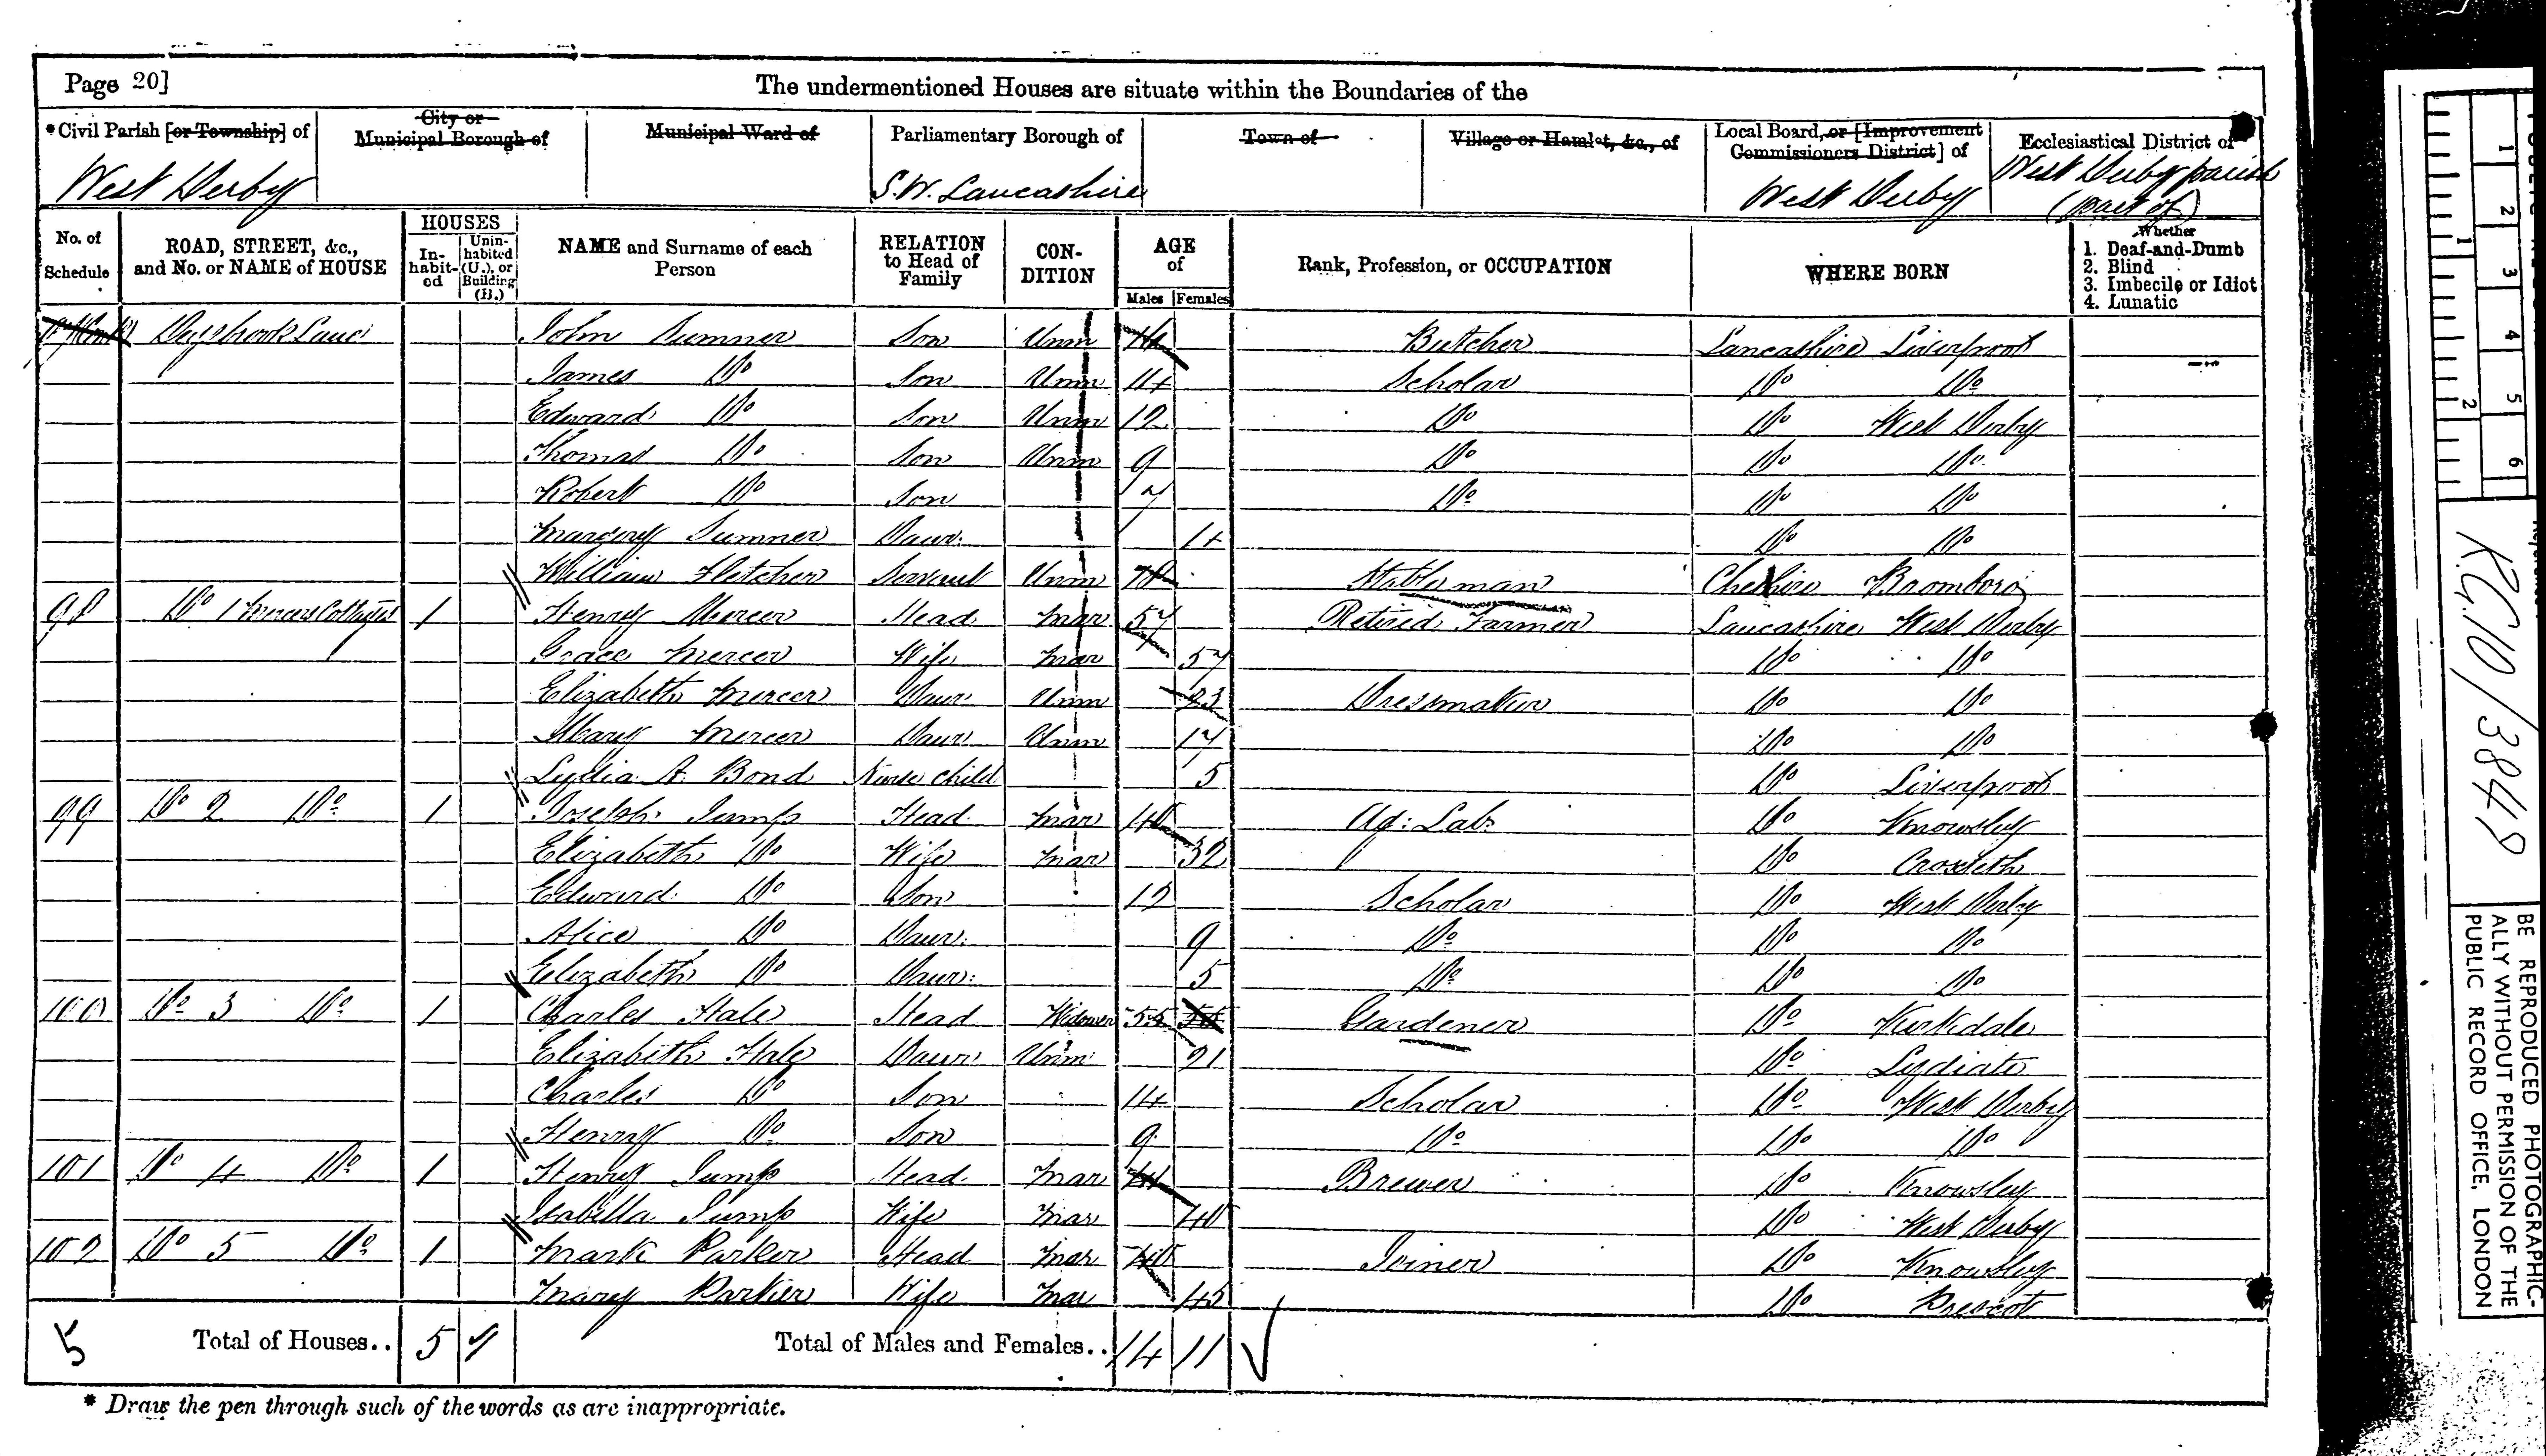 Page 20]
The undermentioned Houses are situate within the Boundaries of the
*Civil Parish [or Township] of City or Municipal Borough of Municipal Ward of Parliamentary Borough of Town of Village or Hamlet, &c., of Local Board, or [Improvement Commissioners District] of Ecclesiastical District of
West Derby S.W. Lancashire West Derby West Derby parish (part of)
No. of Schedule ROAD, STREET, &c., and No. or NAME of HOUSE HOUSES Inhabited Uninhabited (U.), or Building (B.) NAME and Surname of each Person RELATION to Head of Family CONDITION AGE of Males Females Rank, Profession, or OCCUPATION WHERE BORN Whether 1. Deaf-and-Dumb 2. Blind 3. Imbecile or Idiot 4. Lunatic
Deysbrook Lane John Sumner Son Unm Butcher Lancashire Liverpool
James Do Son Unm 14 Scholar Do Do
Edward Do Son Unm 12 Do Do West Derby
Thomas Do Son Unm 9 Do Do Do
Robert Do Son 7 Do Do Do
Margery Sumner Daur. 14 Do Do
William Fletcher Servant Unm 18 Stableman Cheshire Bromboro
98 Do 1 Mercers Cottages 1 Henry Mercer Head Mar 57 Retired Farmer Lancashire West Derby
Grace Mercer Wife Mar 57 Do Do
Elizabeth Mercer Daur Unm 23 Dressmaker Do Do
Mary Mercer Daur Unm 17 Do Do
Lydia A. Bond Nurse child 5 Do Liverpool
99 Do 2 Do 1 Joseph Jump Head Mar 40 Ag: Lab: Do Knowsley
Elizabeth Do Wife Mar 32 Do Croxteth
Edward Do Son 12 Scholar Do West Derby
Alice Do Daur: 9 Do Do Do
Elizabeth Do Daur: 5 Do Do Do
100 Do 3 Do 1 Charles Hale Head Widower 55 Gardener Do Kirkdale
Elizabeth Hale Daur Unm 21 Do Lydiate
Charles Do Son 14 Scholar Do West Derby
Henry Do Son 9 Do Do Do
101 Do 4 Do 1 Henry Jump Head Mar 44 Brewer Do Knowsley
Isabella Jump Wife Mar 40 Do West Derby
102 Do 5 Do 1 Mark Parker Head Mar 40 Joiner Do Knowsley
Mary Parker Wife Mar 45 Do Prescot
5 Total of Houses.. 5 Total of Males and Females.. 14 11
* Draw the pen through such of the words as are inappropriate.
1 2 3 4 5 6
1 2
R.G. 10/3849
BE REPRODUCED PHOTOGRAPHIC-
ALLY WITHOUT PERMISSION OF THE
PUBLIC RECORD OFFICE, LONDON